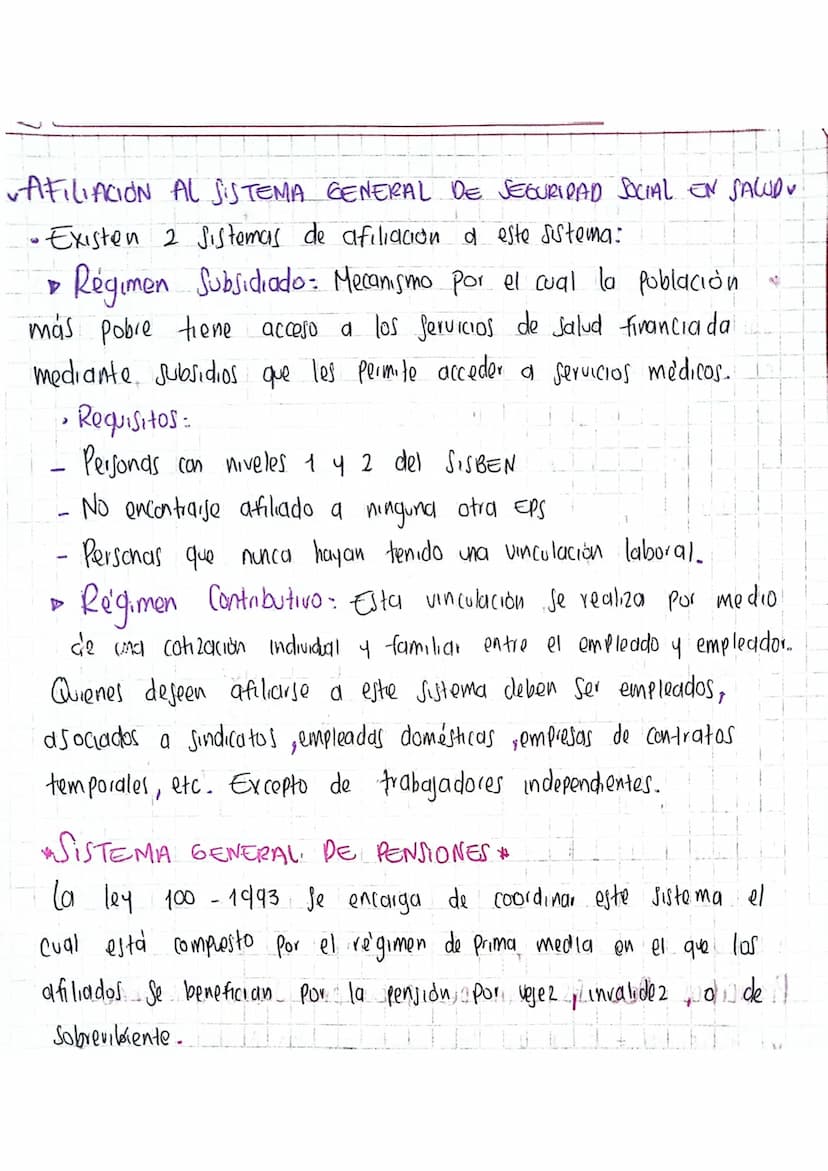 AFILIACIÓN AL SISTEMA GENERAL DE SEGURIDAD SOCIAL EN SALUD
• Existen 2 sistemas de afiliación a este sistema:
▷ Régimen Subsidiado: Mecanismo por el cual la población
más pobre tiene acceso a los servicios de salud financiada
mediante subsidios que les permite acceder a servicios médicos.
• Requisitos:
- Personas con niveles 1 y 2 del SISBEN
- No encontrarse afiliado a ninguna otra EPS
- Personas que nunca hayan tenido una vinculación laboral.
▷ Régimen Contributivo: Esta vinculación se realiza por medio
de una cotización individual y familiar entre el empleado y empleador.
Quienes deseen afiliarse a este sistema deben ser empleados,
asociados a sindicatos, empleadas domésticas, empresas de contratos
temporales, etc. Excepto de trabajadores independientes.
*SISTEMA GENERAL DE PENSIONES*
La ley 100 - 1993 se encarga de coordinar este sistema el
cual está compuesto por el régimen de prima media en el que los
afiliados se benefician por la pensión, por vejez, invalidez, o de
sobreviviente.